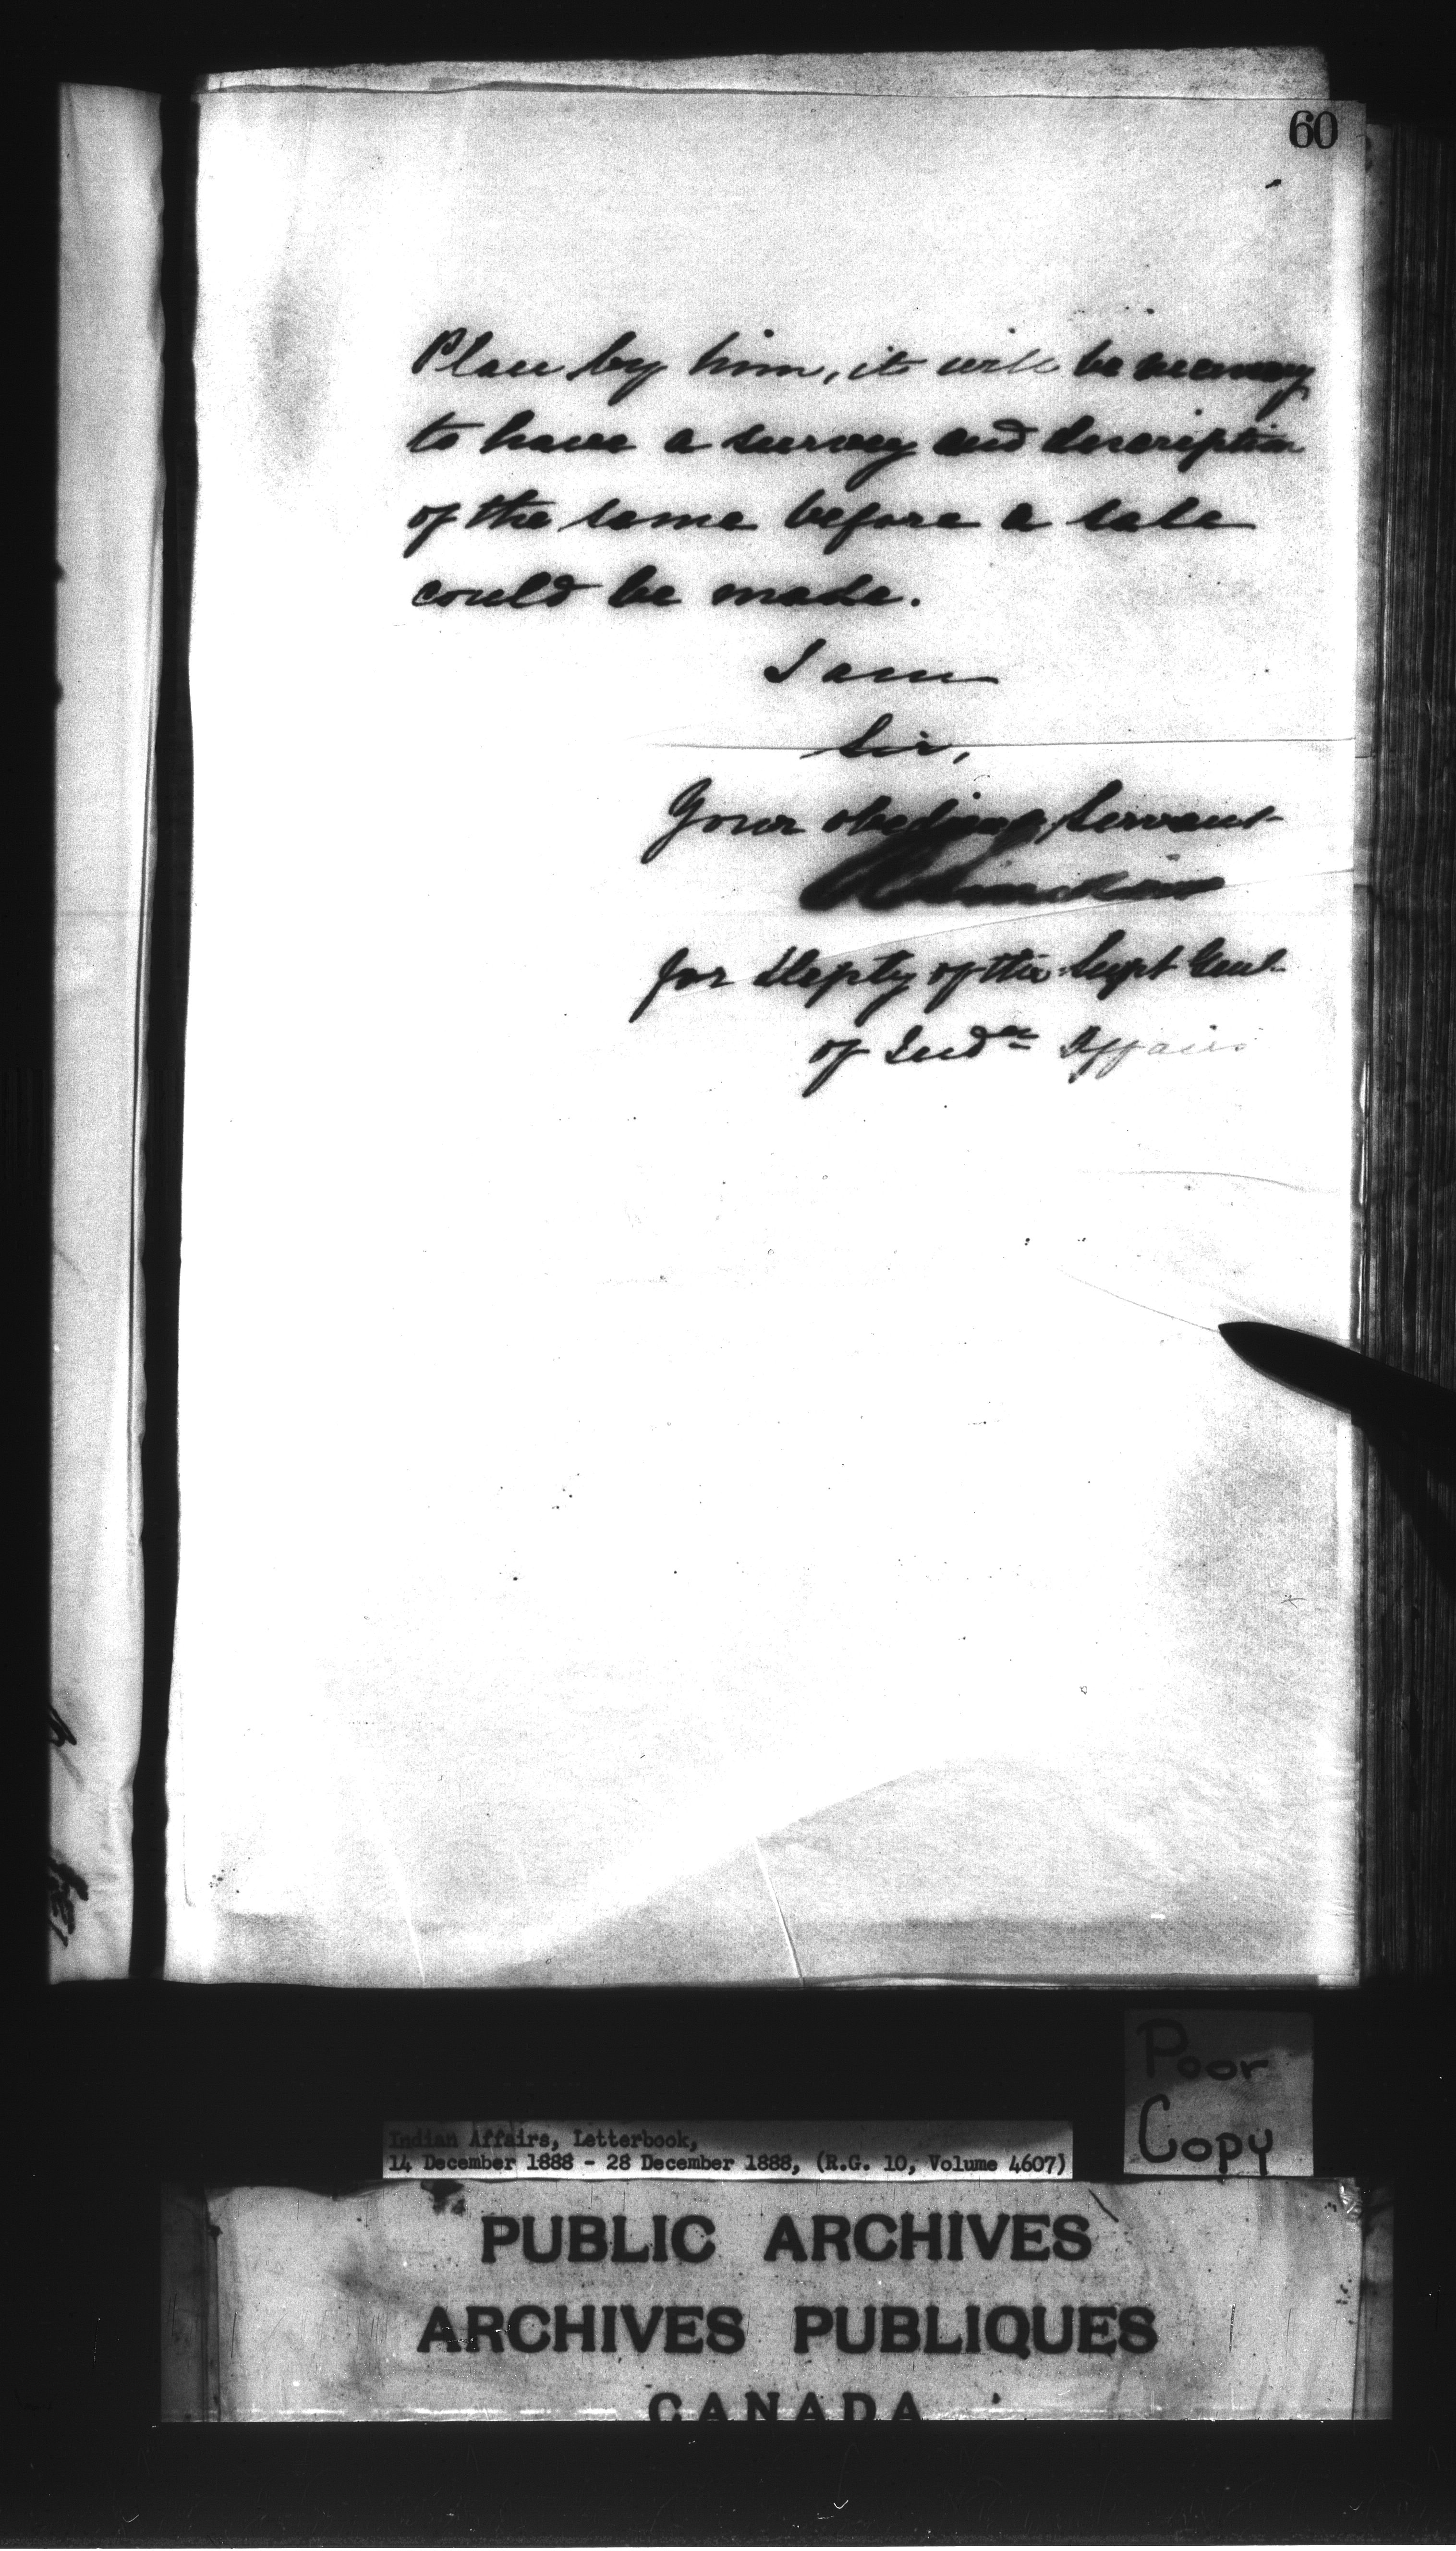 60
Plan by him, it will be necessary
to have a survey and description
of the same before a sale
could be made.
I am
Sir,
Your obedient Servant
for Depty of the Supt Genl.
of Indn Affairs
Poor
Copy
Indian Affairs, Letterbook,
14 December 1888 - 28 December 1888, (R.G. 10, Volume 4607)
PUBLIC ARCHIVES
ARCHIVES PUBLIQUES
CANADA